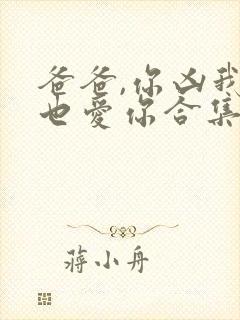 爸爸,你凶我
也爱你合集
蒋小舟